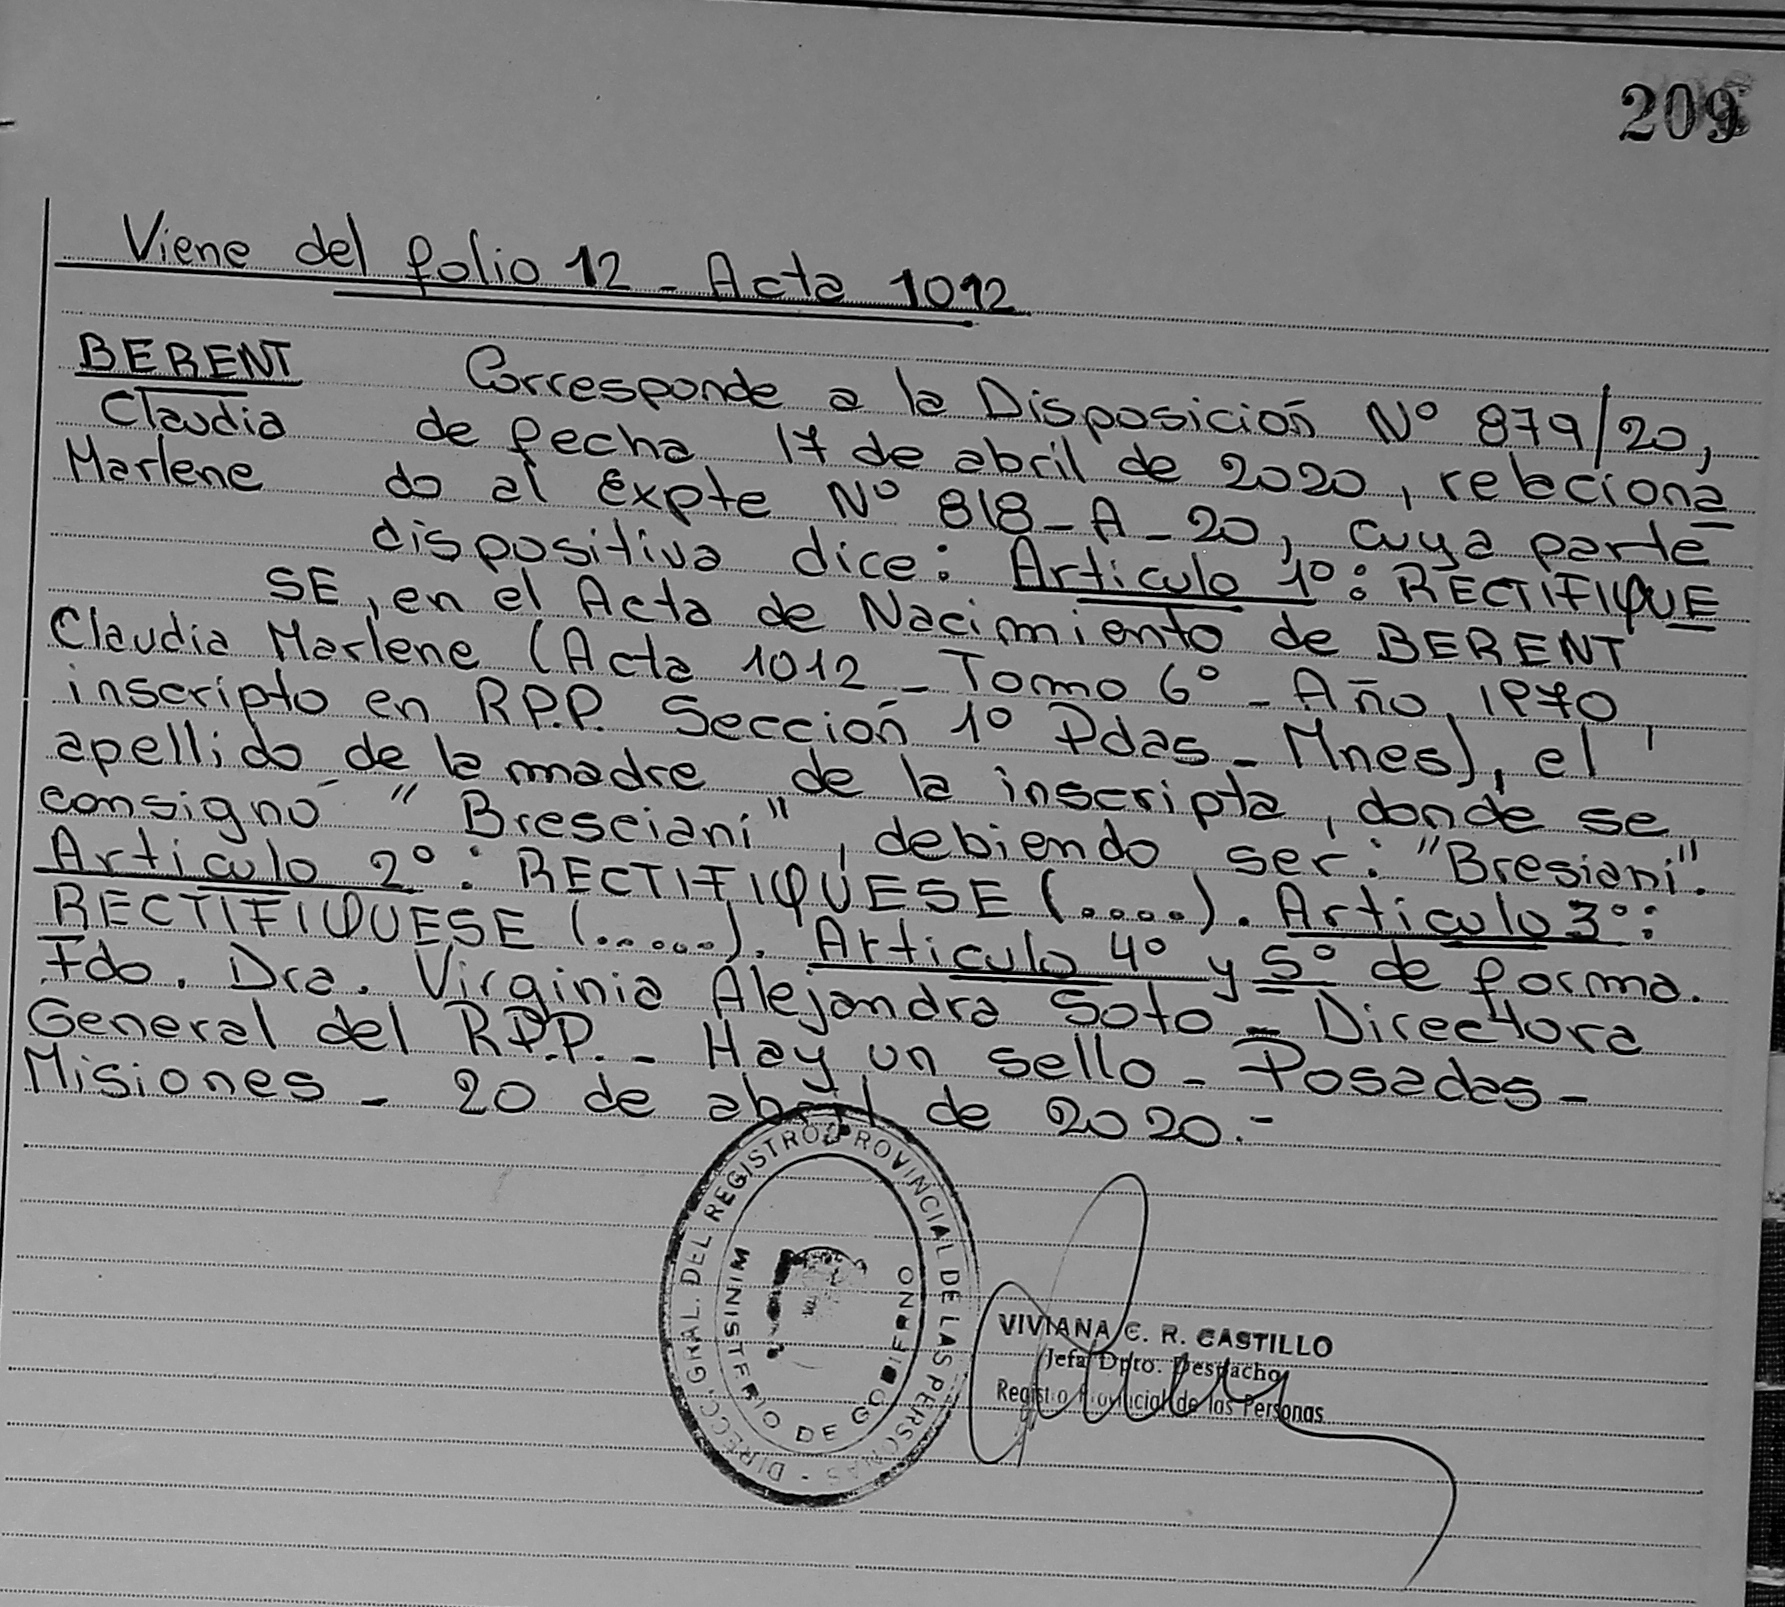 209
Viene del folio 12 - Acta 1012
BERENT Corresponde a la Disposición Nº 879/20,
Claudia de fecha 17 de abril de 2020, relaciona
Marlene do al Expte Nº 818-A-20, cuya parte
dispositiva dice: Articulo 1º: RECTIFIQUE
SE, en el Acta de Nacimiento de BERENT
Claudia Marlene (Acta 1012 - Tomo 6º - Año 1970,
inscripto en RP.P. Sección 1º Pdas - Mnes), el
apellido de la madre de la inscripta, donde se
consignó "Bresciani", debiendo ser: "Bresiani".
Articulo 2º: RECTIFIQUESE (....). Articulo 3º:
RECTIFIQUESE (.....). Articulo 4º y 5º de forma.
Fdo. Dra. Virginia Alejandra Soto - Directora
General del R.P.P. - Hay un sello - Posadas -
Misiones - 20 de abril de 2020.-
DIRECC. GRAL. DEL REGISTRO PROVINCIAL DE LAS PERSONAS -
MINISTERIO DE GOBIERNO
VIVIANA C. R. CASTILLO
Jefa Dpto. Despacho
Registro Provincial de las Personas